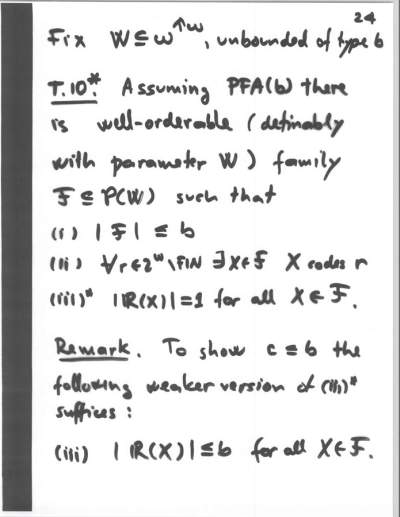 24
Fix W ⊆ ω^↑ω, unbounded of type b
T.10*. Assuming PFA(b) there
is well-orderable (definably
with parameter W) family
F ⊆ P(W) such that
(i) |F| ≤ b
(ii) ∀r∈2^ω\FIN ∃X∈F X codes r
(iii)* |R(X)|=1 for all X∈F.
Remark. To show c = b the
following weaker version of (iii)*
suffices:
(iii) |R(X)|≤b for all X∈F.